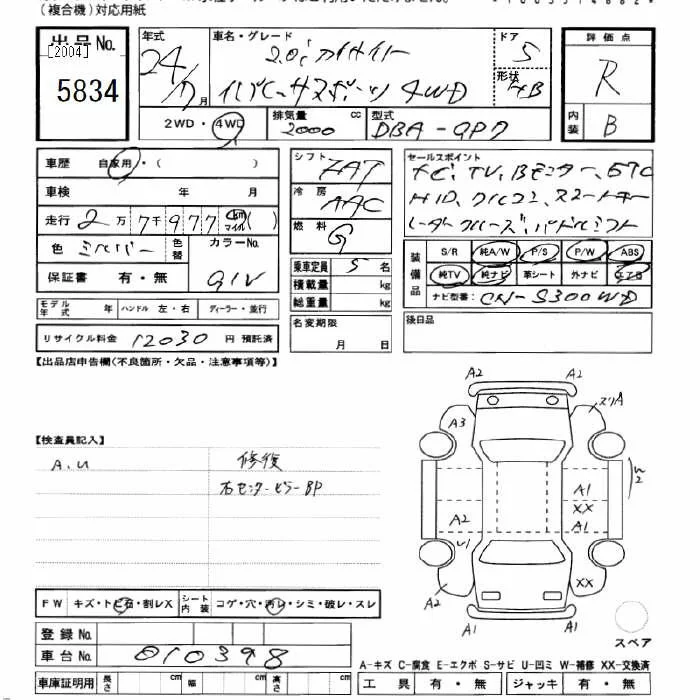 (複合機)対応用紙
出品No.
[2004]
5834
年式
24
7月
車名・グレード
2.0i アイサイト
インプレッサスポーツ 4WD
ドア
5
形状
HB
評価点
R
内装
B
2WD・4WD
排気量
2000
cc
型式
DBA-GP7
車歴
自家用・( )
車検 年 月
走行
2万7千977
km
マイル
( )
色
シルバー
色替
カラーNo.
G1V
保証書 有・無
シフト
FAT
冷房
AAC
燃料
G
乗車定員 5 名
積載量 kg
総重量 kg
セールスポイント
ナビ、TV、Bモニター、ETC
HID、クルコン、スマートキー
レーダークルーズ、パドルシフト
装備品
S/R 純A/W P/S P/W ABS
純TV 純ナビ 革シート 外ナビ エアB
ナビ型番: CN-S300WD
モデル年式 年 ハンドル 左・右 ディーラー・並行
リサイクル料金 12030 円 預託済
名変期限
月 日
後日品
【出品店申告欄(不良箇所・欠品・注意事項等)】
【検査員記入】
A.U
修復
右センターピラーBP
A2 A2
A3
スリA
W2
A1
XX
A2 A1
U1
XX
A2
A2
A2
スペア
FW キズ・トビ石・割レX シート内装 コゲ・穴・汚レ・シミ・破レ・スレ
登録No.
車台No. 010398
車庫証明用 長さ cm 幅 cm 高さ cm
A-キズ C-腐食 E-エクボ S-サビ U-凹ミ W-補修 XX-交換済
工具 有・無 ジャッキ 有・無